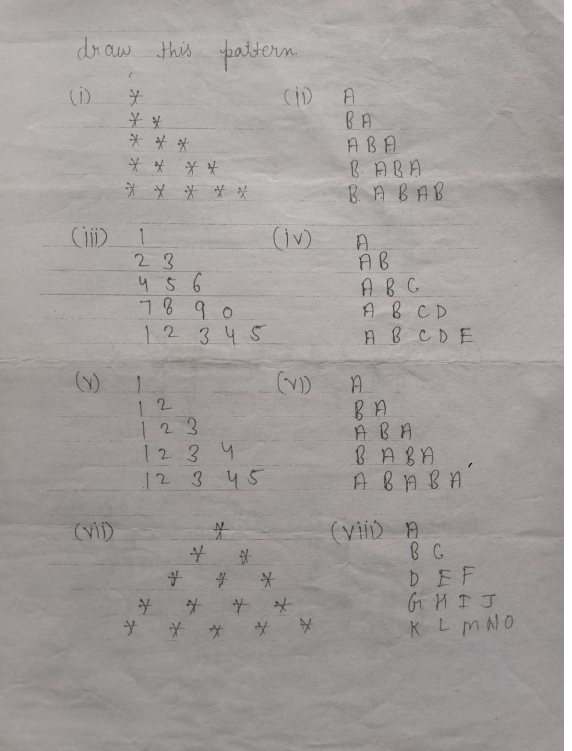 draw this pattern
(i) *
* *
* * *
* * * *
* * * * *
(ii) A
B A
A B A
B A B A
B A B A B
(iii) 1
2 3
4 5 6
7 8 9 0
1 2 3 4 5
(iv) A
A B
A B C
A B C D
A B C D E
(v) 1
1 2
1 2 3
1 2 3 4
1 2 3 4 5
(vi) A
B A
A B A
B A B A
A B A B A
(vii) *
* *
* * *
* * * *
* * * * *
(viii) A
B C
D E F
G H I J
K L M N O